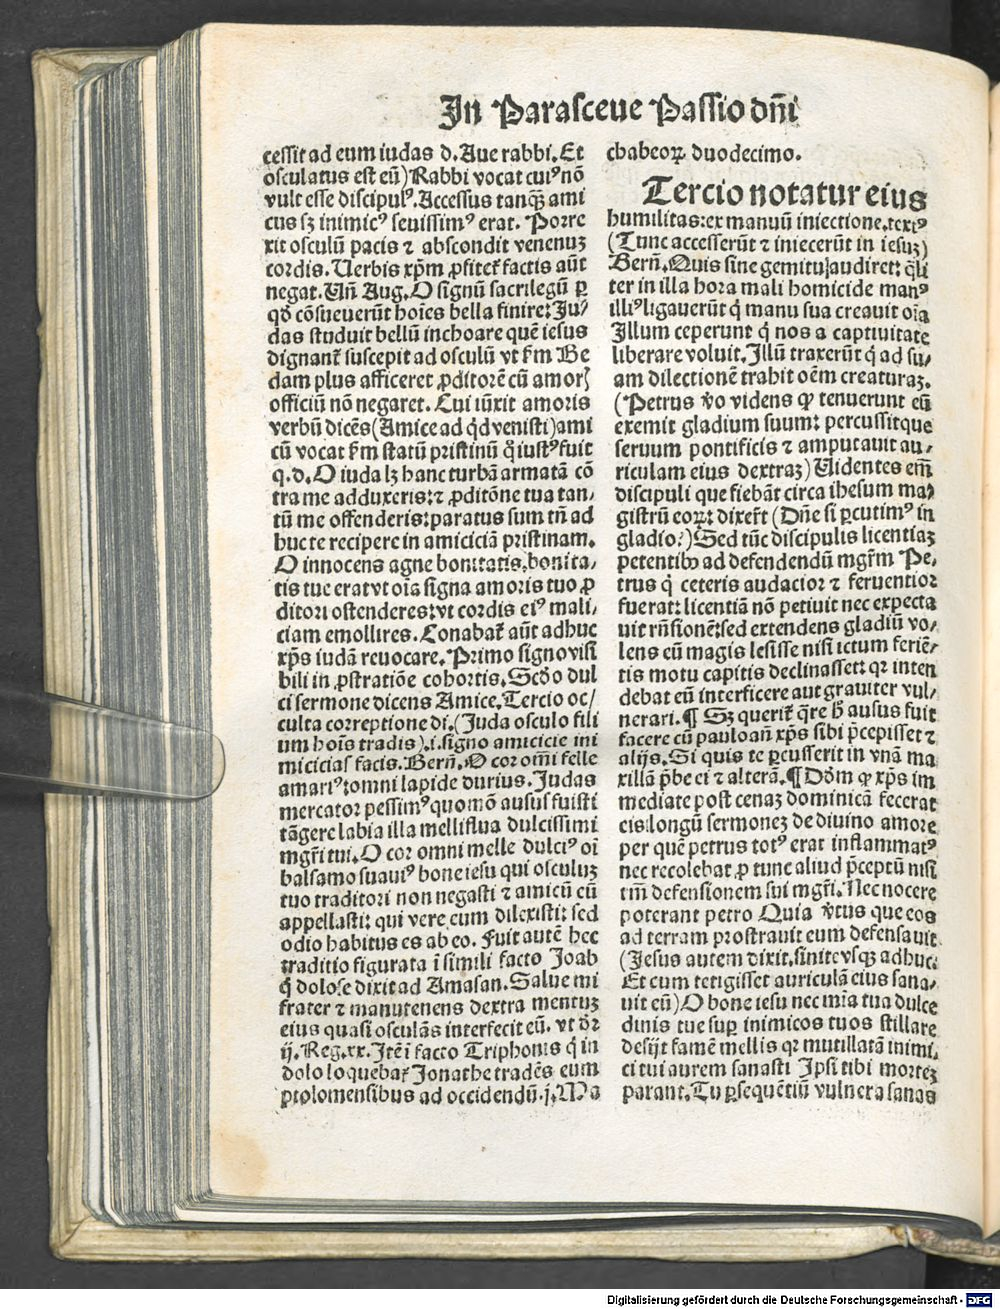 In Parasceue Passio dn̄i
cessit ad eum iudas d. Aue rabbi. Et
osculatus est eū) Rabbi vocat cuiꝰ nō
vult esse discipulꝰ. Accessus tanqȝ ami
cus sȝ inimicꝰ seuissimꝰ erat. Porre
xit osculū pacis ⁊ abscondit venenuȝ
cordis. Uerbis xp̄m ꝓfitet᷑ factis aūt
negat. Un̄ Aug. O signū sacrilegū ꝑ
qd̄ cōsueuerūt hoīes bella finire: Ju⸗
das studuit bellū inchoare quē iesus
dignant᷑ suscepit ad osculū vt ẜm Be
dam plus afficeret ꝓditorē cū amorꝭ
officiū nō negaret. Cui iūxit amoris
verbū dicēs (Amice ad qd̓ venisti) ami
cū vocat ẜm statū pristinū q̓ iustꝰ fuit
q. d. O iuda lȝ hanc turbā armatā cō
tra me adduxeris: ⁊ ꝓditōne tua tan⸗
tū me offenderis: paratus sum tn̄ ad
huc te recipere in amiciciā pristinam.
O innocens agne bonitatis, bonita⸗
tis tue erat vt oīa signa amoris tuo ꝓ
ditori ostenderes: vt cordis eiꝰ mali⸗
ciam emollires. Conabat᷑ aūt adhuc
xp̄s iudā reuocare. Primo signo visi
bili in ꝓstratiōe cohortis. Scd̓o dul
ci sermone dicens Amice. Tercio oc⸗
culta correptione di. (Juda osculo fili
um hoīs tradis) .i. signo amicicie ini
miciciaſ facis. Bern̄. O cor om̄i felle
amariꝰ: omni lapide durius. Judas
mercator pessimꝰ quomō ausus fuisti
tāgere labia illa melliflua dulcissimi
mgr̄i tui. O cor omni melle dulciꝰ oī
balsamo suauiꝰ bone iesu qui osculuȝ
tuo traditori non negasti ⁊ amicū eū
appellasti: qui vere eum dilexisti: sed
odio habitus es ab eo. Fuit autē hec
traditio figurata ī simili facto Joab
q̓ dolose dixit ad Amasan. Salue mi
frater ⁊ manutenens dextra mentuȝ
eius quasi osculās interfecit eū. vt dr̄
ij. Reg. xx. Jtē ī facto Triphonis q̓ in
dolo loquebat᷑ Jonathe tradēs eum
ptolomensibus ad occidendū. j. Ma
chabeoꝝ duodecimo.
Tercio notatur eius
humilitas: ex manuū iniectione. textꝰ
(Tunc accesserūt ⁊ iniecerūt in iesuȝ)
Bern̄. Quis sine gemitu audiret: q̄li
ter in illa hora mali homicide manꝰ
illiꝰ ligauerūt q̓ manu sua creauit oīa
Jllum ceperunt q̓ nos a captiuitate
liberare voluit. Jllū traxerūt q̓ ad su⸗
am dilectionē trahit oēm creaturaȝ.
(Petrus v̓o videns ꝙ tenuerunt eū
exemit gladium suum: percussitque
seruum pontificis ⁊ amputauit au⸗
riculam eius dextraȝ) Uidentes em̄
discipuli que fiebāt circa ihesum ma⸗
gistrū eoꝝ: dixer̄t (Dn̄e si ꝑcutimꝰ in
gladio?) Sed tūc discipulis licentiaȝ
petentibꝰ ad defendendū mgr̄m Pe⸗
trus q̓ ceteris audacior ⁊ feruentior
fuerat: licentiā nō petiuit nec expecta
uit rn̄sionē: sed extendens gladiū vo⸗
lens eū magis lesisse nisi ictum feriē⸗
tis motu capitis declinasset: qꝛ inten
debat eū interficere aut grauiter vul⸗
nerari. ¶ Sȝ querit᷑ q̄re h̓ ausus fuit
facere cū paulo an̄ xp̄s sibi p̄cepisset ⁊
alijs. Si quis te ꝑcusserit in vnā ma
xillā p̄be ei ⁊ alterā. ¶ Dd̓m ꝙ xp̄s im
mediate post cenaȝ dominicā fecerat
eis longū sermoneȝ de diuino amore
per quē petrus totꝰ erat inflammatꝰ
nec recolebat ꝓ tunc aliud p̄ceptū nisi
tm̄ defensionem sui mgr̄i. Nec nocere
poterant petro Quia v̓tus que eos
ad terram prostrauit eum defensauit
(Jesus autem dixit. sinite vsqȝ adhuc.
Et cum tetigisset auriculā eius sana⸗
uit eū) O bone iesu nec mīa tua dulce
dinis tue suꝑ inimicos tuos stillare
desijt famē mellis qꝛ mutillatā inimi⸗
ci tui aurem sanasti Jpsi tibi morteȝ
parant. Tu ꝑsequētiū vulnera sanas
Digitalisierung gefördert durch die Deutsche Forschungsgemeinschaft - DFG